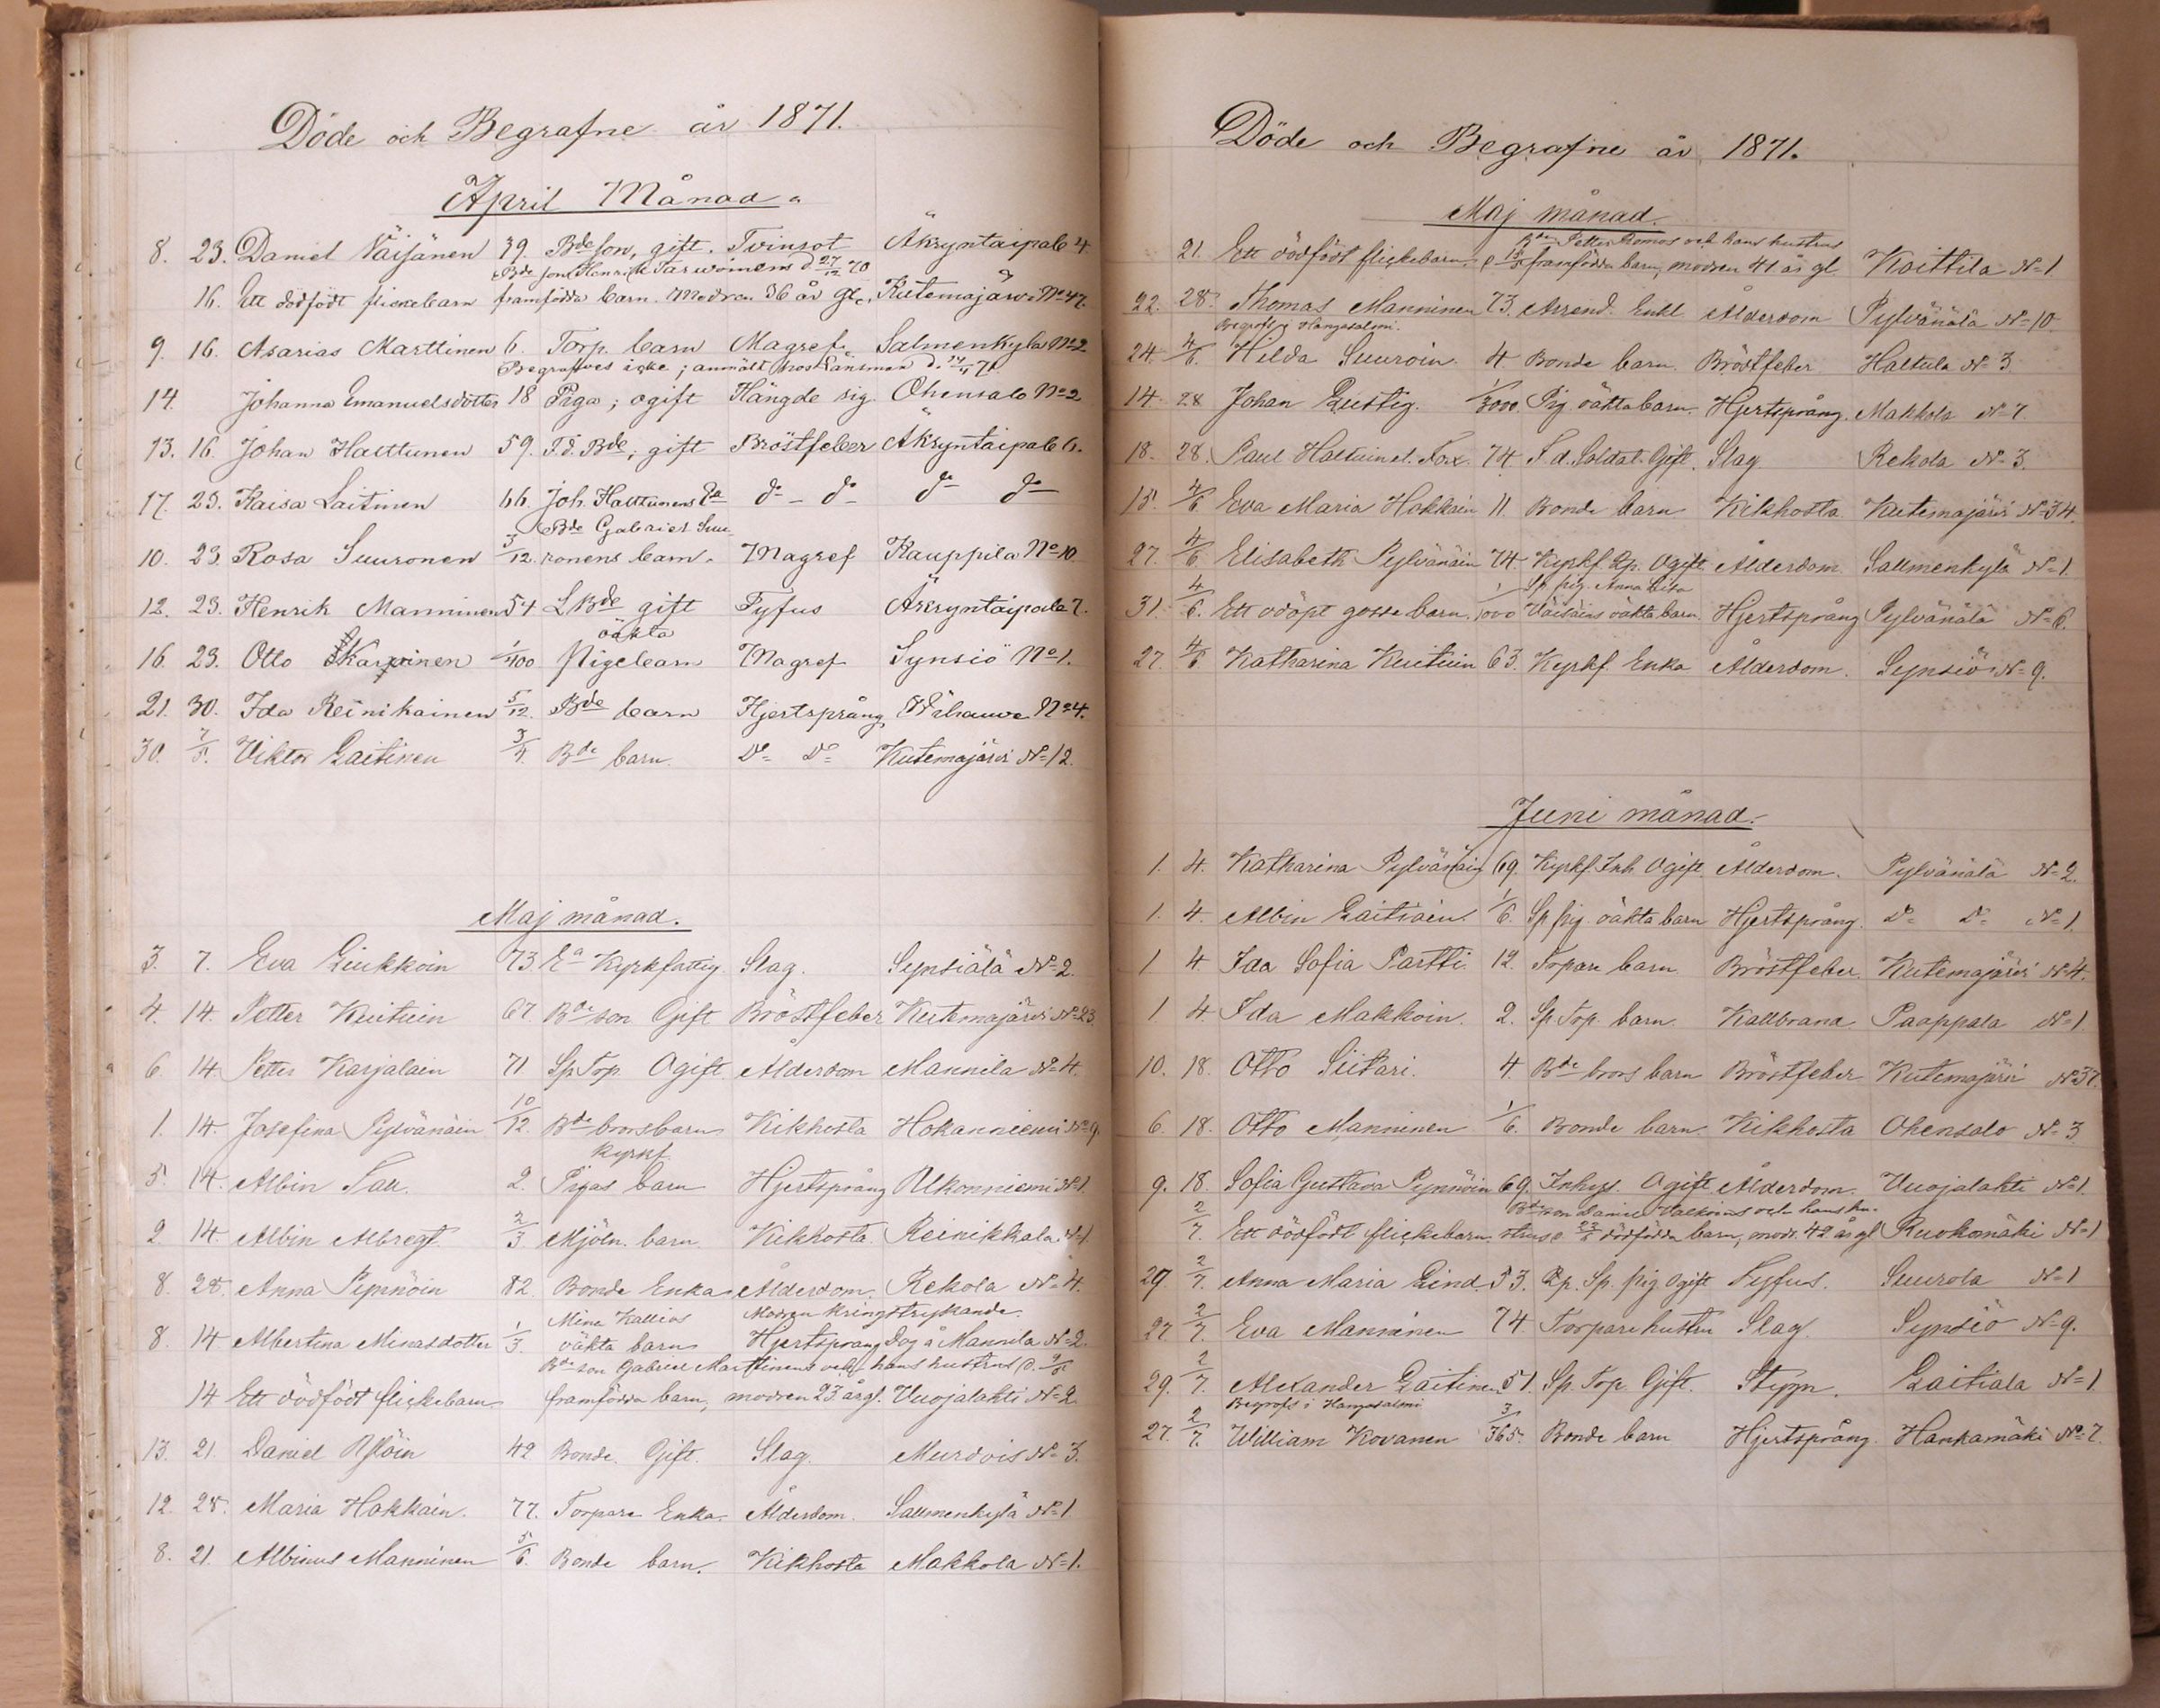 Döde och Begrafne år 1871.
April Månad.
8. 23. Daniel Väisänen 39. Bde Son, gift. Tvinsot Äkryntaipale 4.
Bde son Henrik Tarwainens d. 27/12 70
16. Ett dödfödt flickebarn framfödda barn. Modren 36 år gl. Kutemajärvi No 47.
9. 16. Asarias Marttinen 6. Torp. barn Magref. Salmenkylä No 2
Begrafves icke; anmäldt hos Länsman d. 14/4 71.
14. Johanna Emanuelsdotter 18 Piga; ogift Hängde sig. Ohensalo No 2
13. 16. Johan Halttunen 59. F.d. Bde; gift Bröstfeber Äkryntaipale 6.
17. 23. Kaisa Laitinen 66. Joh. Halttunens Ea do - do do do
Bde Gabriel Suu-
10. 23. Rosa Suuronen 3/12. ronens barn. Magref Kauppila No 10
12. 23. Henrik Manninen 54 L.Bde gift Tyfus Äkryntaipale 7.
oäkta
16. 23. Otto Karvinen 1/100 Pigebarn Magref Synsiö No 1.
21. 30. Ida Reinikainen 5/12. Bde barn Hjertsprång No 4.
30. 7/5. Viktor Laitinen 3/4. Bde barn. Do Do Kutemajärvi No 12.
Maj månad.
3. 7. Eva Liukkoin 73. Ea Kyrkfattig. Slag. Synsiälä No 2.
4. 14. Petter Kuituin 67. Bde son Gift Bröstfeber Kutemajärvi No 23
6. 14. Petter Karjalain 71 Sp Torp. Ogift Ålderdom Mannila No 4.
1. 14. Josefina Pylvänäin 10/12. Bde brorsbarn Kikhosta Hokanniemi No 9.
kyrkf.
5. 14. Albin Sall. 2. Pigas barn Hjertsprång Ukonniemi No 1.
2. 14. Albin Albregt. 2/3 Mjöln. barn Kikhosta. Reinikkala No 1.
8. 28. Anna Pynnöin 82. Bonde Enka Ålderdom. Rekola No 4.
Mina Kallios Modren kringstrykande.
8. 14 Albertina Minasdotter 1/3. oäkta barn Hjertsprång Dog å Mannila No 2.
Bde son Gabriel Marttinens och hans hustrus d. 9/5
14 Ett dödfödt flickebarn framfödda barn, modren 23 år gl. Vuojalahti No 2.
13. 21 Daniel 42 Bonde. Gift. Slag. Murdois No 3.
12. 28. Maria Hakkain. 77. Torpare Enka. Ålderdom. Sallmenkylä No 1
8. 21. Albinus Manninen 5/6. Bonde barn. Kikhosta Makkola No 1.
Döde och Begrafne år 1871.
Maj månad.
Bde Petter Romos och hans hustrus
21. Ett dödfödt flickebarn. framfödda barn, modren 41 år gl. Koittila No 1.
22. 28. Thomas Manninen 73. Arrend. Enkl Ålderdom Pylvänälä No 10
Begrofs i Hangasalmi.
24. 4/6. Hilda Suuroin. 4. Bonde barn. Bröstfeber Haltula No 3.
14. 28 Johan Lustig. 1/3000. Pig. oäkta barn. Hjertsprång. Makkola No 7.
18. 28. Paul Haltuin el. Fox. 74 F.d. Soldat. Gift. Slag Rekola No 3.
15. 4/6. Eva Maria Hokkain 11. Bonde barn Kikhosta Kutemajärvi No 34.
27. 4/6. Elisabeth Pylvänäin 74. Kyrkf. Rp. Ogift Ålderdom Sallmenkylä No 1.
Sp. pig. Anna Lisa
31. 4/6. Ett odöpt gosse barn. 1/1000 Väisäins oäkta barn. Hjertsprång Pylvänälä No 6.
27. 4/6. Katharina Kuituin 63. Kyrkf. Enka Ålderdom. Synsiö No 9.
Juni månad.
1. 4. Katharina Pylvänäin 69. Kyrkf. Inh. Ogift. Ålderdom. Pylvänälä No 2.
1. 4. Albin Laitiain. 1/6. Sp pig. oäkta barn Hjertsprång. Do Do No 1.
1 4. Ida Sofia Partti. 12. Torpare barn. Bröstfeber. Kutemajärvi No 4.
1 4. Ida Makkoin. 2. Sp Torp. barn. Kallbrand Paappala No 1
10. 18. Otto Siitari. 4. Bde brors barn Bröstfeber Kutemajärvi No 37.
6. 18. Otto Manninen 1/6. Bonde barn. Kikhosta Ohensalo No 3
9. 18. Sofia Gustava Pynnöin 69. Inhys. Ogift Ålderdom. Vuojalahti No 1.
Bde son Daniel Valkoins och hans hu-
2/7. Ett dödfödt flickebarn. strus dödfödda barn, modr. 42 år gl Ruokomäki No 1
29. 2/7. Anna Maria Lind. 53. Rp. Sp. pig. Ogift Tyfus. Suurola No 1
27. 2/7. Eva Manninen 74. Torpare hustru Slag. Synsiö No 9.
29. 2/7. Alexander Laitinen 51. Sp. Torp. Gift. Laitiala No 1
Begrofs i Hangasalmi
27. 2/7. William Kovanen 3/365. Bonde barn Hjertsprång. Hankamäki No 7.